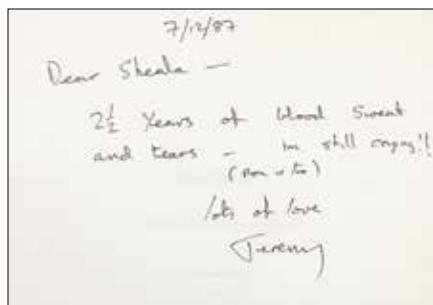 7/12/87
Dear Sheala —
2½ Years of blood Sweat
and tears – im still crying!!
lots of love
Jeremy